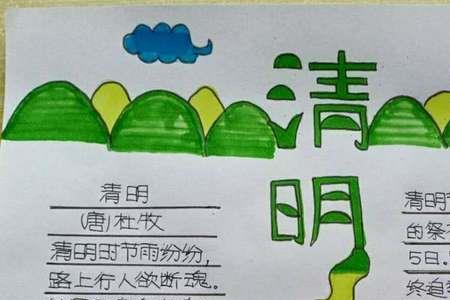 清明
清明
(唐)杜牧
清明时节雨纷纷,
路上行人欲断魂。
清明节
的祭
5日。
终追